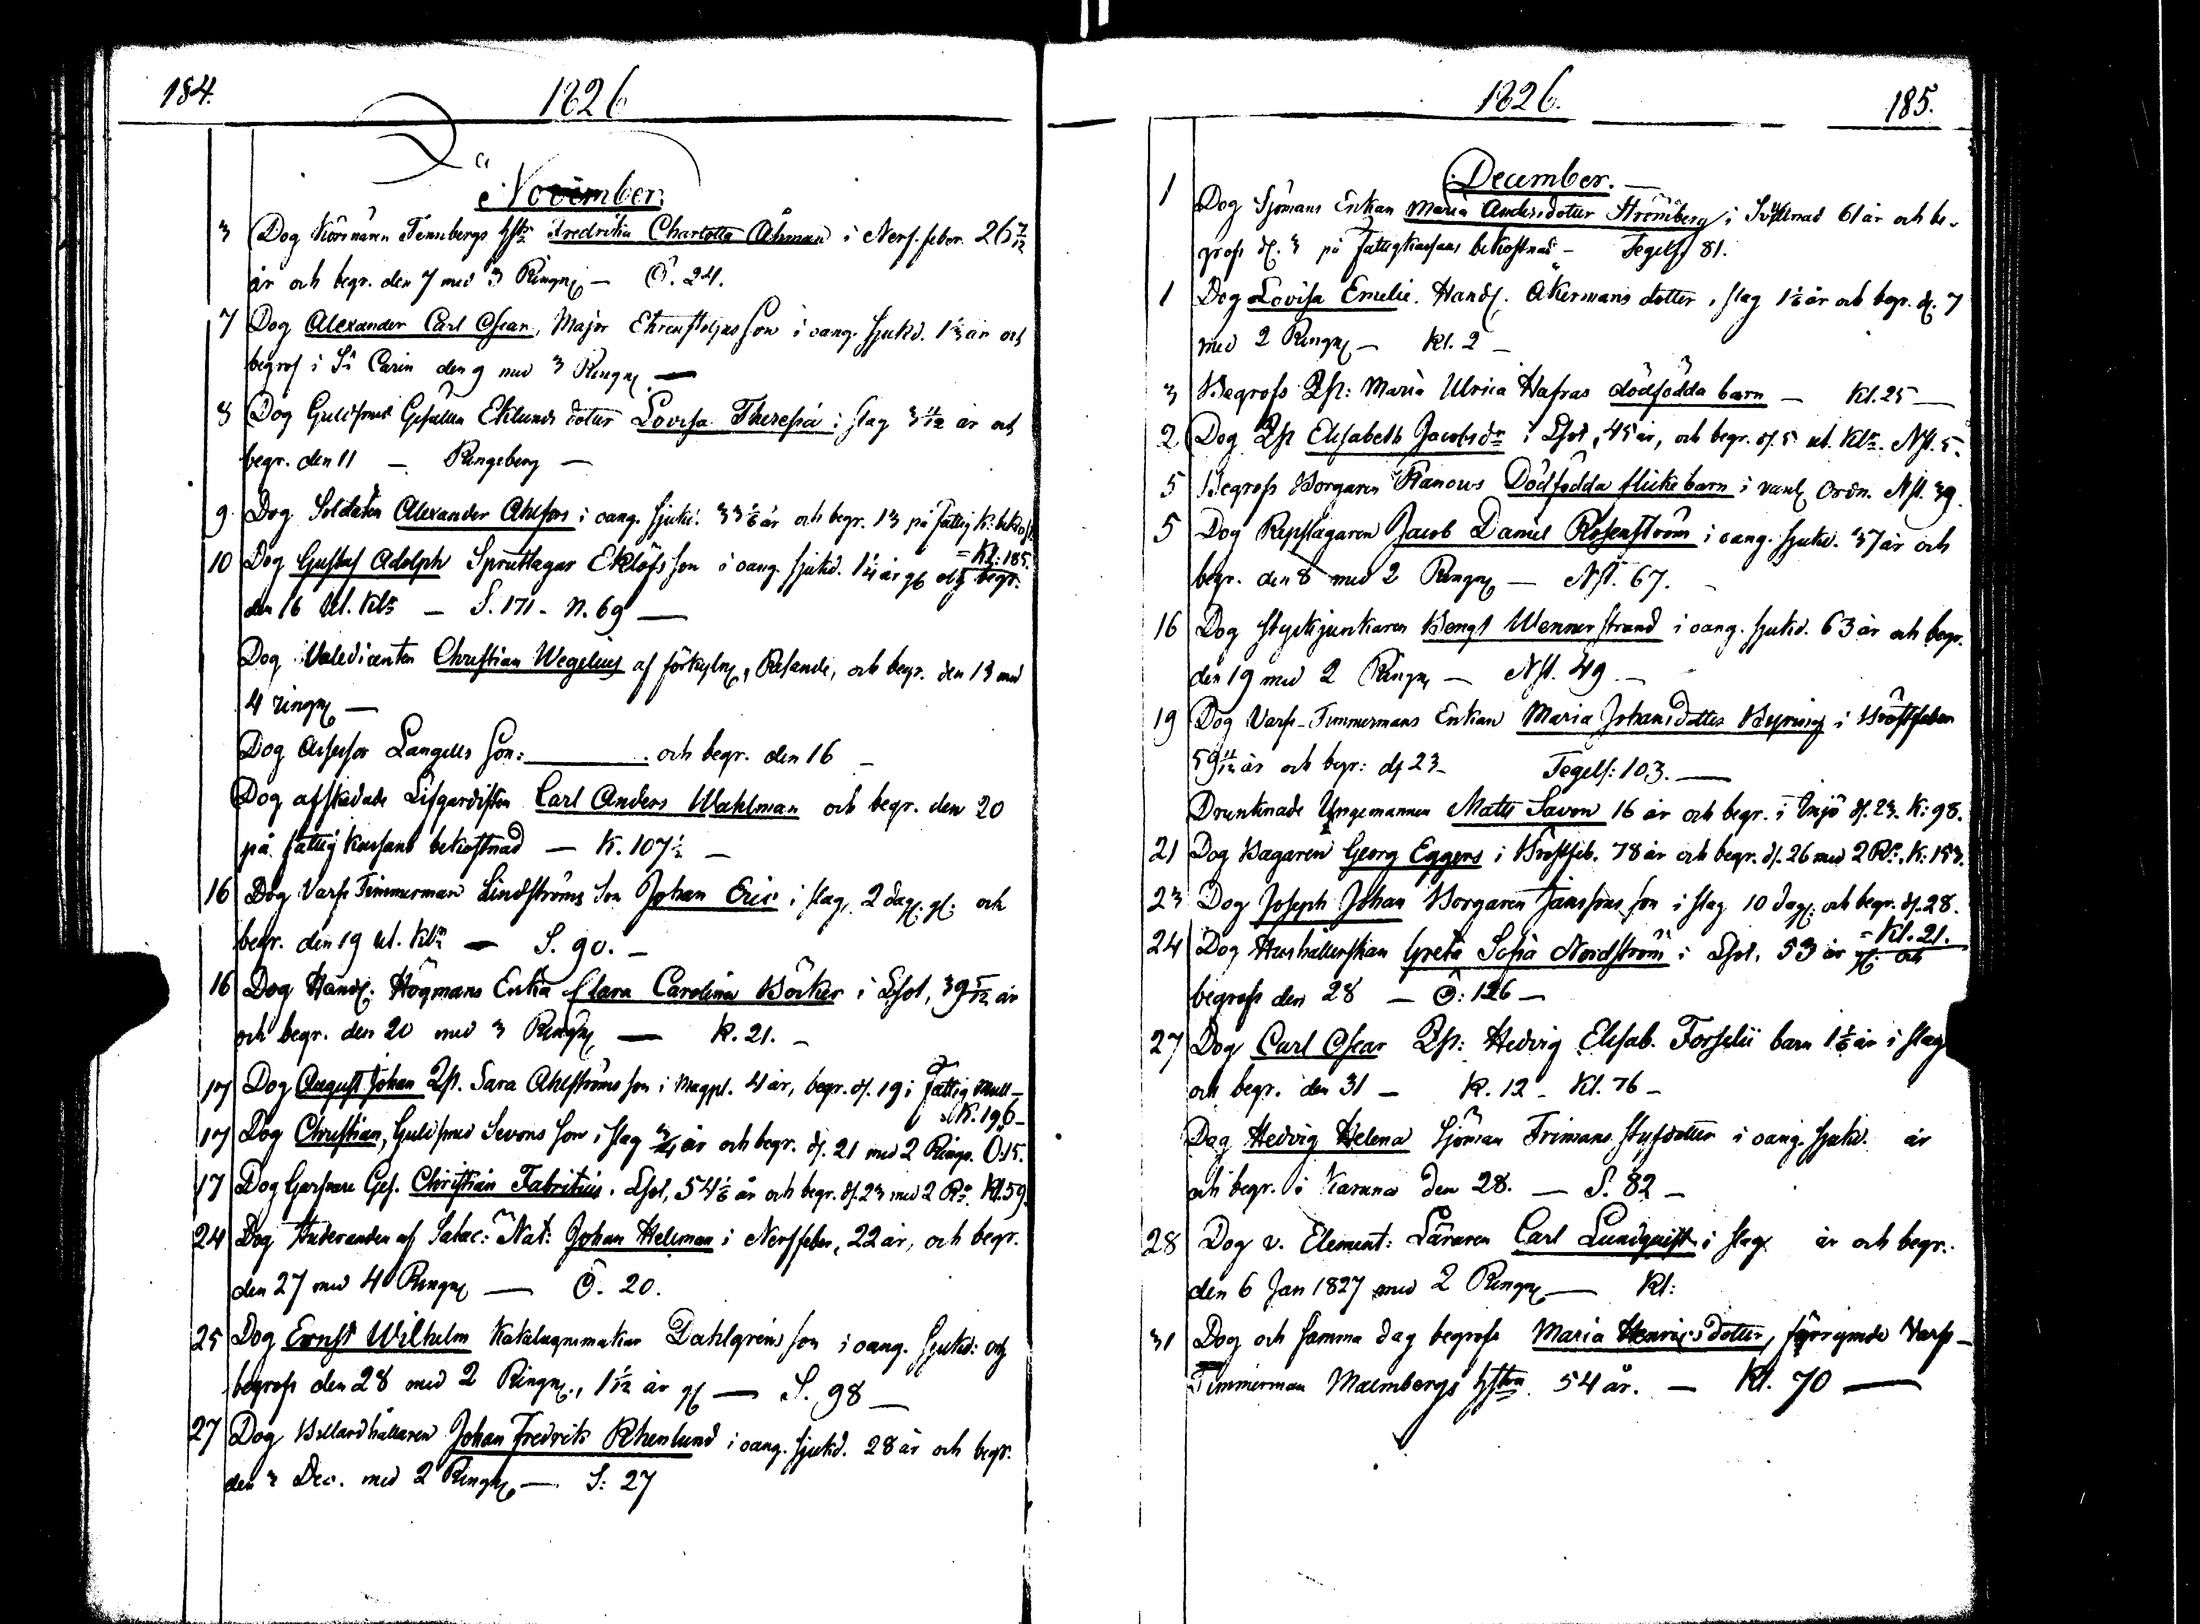 184. 1826
November.
3 Dog Körsnären Tennbergs hstr Fredrika Charlotta Åhman i Nerf. feber 26 7/12
år och begr. den 7 med 3 Ringn. — Ö. 24.
7 Dog Alexander Carl Oscar, Major Ehrenstolpes son i oang. sjukd. 1 1/3 år och
begrof i St Carin den 9 med 3 Ringn. —
8 Dog Guldsmeds Gesällen Eklunds dotter Lovisa Theresia i slag 3 11/12 år och
begr. den 11 — Ringsberg —
9 Dog Soldaten Alexander Ahlfors i oang. sjukd. 33 1/6 år och begr. 13 på fattig k: bekost.
= Kl: 185.
10 Dog Gustaf Adolph Sprutlagar Eklöfs son i oang. sjukd. 1 1/4 år gl och begr.
den 16 ut. Klr — S. 171 - N. 69 —
Dog Valedicenten Christian Wegelius af förkyln., Resande, och begr. den 13 med
4 ringn. —
Dog Assessor Langells son: och begr. den 16 —
Dog afskedade Lifgardisten Carl Anders Wahlman och begr. den 20
på fattig kassans bekostnad — K. 107 1/2 —
16 Dog Varfs Timmerman Lindströms son Johan Eric i slag, 2 dag. gl: och
begr. den 19 ut. Klr — S. 90. —
16 Dog Handl. Högmans Enka Clara Carolina Böcker i Lsot, 39 5/12 år
och begr. den 20 med 3 Ringn. — K. 21. —
17 Dog August Johan Qp. Sara Ahlströms son i Magpl. 4 år, begr. d. 19 i Fattig Mull —
K. 196 —
17 Dog Christian, Guldsmed Sevons son i slag 3/4 år och begr. d. 21 med 2 Ringn. Ö. 15.
17 Dog Garfvare Ges. Christian Fabritius, Lsot, 54 1/6 år och begr. d. 23 med 2 Rr. Kl. 59.
24 Dog Studeranden af Satac: Nat: Johan Hellman i Nerffeber, 22 år, och begr.
den 27 med 4 Ringn. — Ö. 20.
25 Dog Ernst Wilhelm Kakelugnsmakar Dahlgrens son i oang. sjukd: och
begrofs den 28 med 2 Ringn., 1 1/12 år gl — S. 98 —
27 Dog Billardhållaren Johan Fredrik Rhenlund i oang. sjukd. 28 år och begr.
den 3 Dec. med 2 Ringn. — S: 27
1826. 185.
December. —
1 Dog Sjömans Enkan Maria Andersdotter Strömberg i 61 år och be-
grofs d. 3 på fattigkassans bekostnad — Tegels. 81.
1 Dog Lovisa Emelie Handl. Åkermans dotter, slag 1 1/6 år och begr. d. 7
med 2 Ringn. — Kl. 2 —
3 Begrofs Qp: Maria Ulrica Hafras dödfödda barn — Kl. 25 —
2 Dog Qp Elisabeth Jacobsdr i Lsot, 45 år, och begr. d. 5 ut. Klr. Nst. 5.
5 Begrofs Borgaren Ranows Dödfödda flickebarn i vanl. Ordn. Nst. 39.
5 Dog Repslagaren Jacob Daniel Rosenström i oang. sjukd. 37 år och
begr. den 8 med 2 Ringn. — Nst. 67.
16 Dog Styckjunkaren Bengt Wennerstrand i oang. sjukd. 63 år och begr.
den 19 med 2 Ringn. — Nst. 49. —
19 Dog Varfs-Timmermans Enkan Maria Johansdotter Bÿring i Bröstfeber
59 11/12 år och begr: d. 23 — Tegels: 103. —
Drunknade Ungemannen Matts Savon 16 år och begr. i d. 23. K: 98.
21 Dog Bagaren Georg Eggers i Bröstfeb. 78 år och begr. d. 26 med 2 Rr. K: 153.
23 Dog Joseph Johan Borgaren Janssons son i slag 10 dag. och begr. d. 28.
= Kl. 21.
24 Dog Hushållerskan Greta Sofia Nordström i Lsot, 53 år gl: och
begrofs den 28 — Ö: 126 —
27 Dog Carl Oscar Qp: Hedvig Elisab. Forselii barn 1 1/6 år i slag
och begr. den 31 — K. 12 — Kl. 76 —
Dog Hedvig Helena Sjöman Frimans styfdotter i oang. sjukd. år
och begr. i Karuna den 28. — S. 82 —
28 Dog v. Element: Läraren Carl Lundquist i slag år och begr.
den 6 Jan 1827 med 2 Ringn. — Kl:
31 Dog och samma dag begrofs Maria Henricsdotter, förrymde Varfs-
Timmerman Malmbergs hstru 54 år. — Kl. 70 —